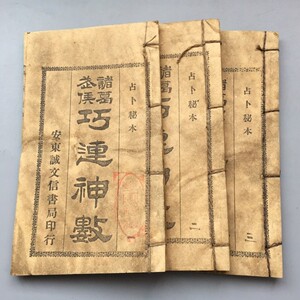 占卜秘本
諸葛
武侯
巧連神數
安東誠文信書局印行
一
占卜秘本
諸葛
二
占卜秘本
三